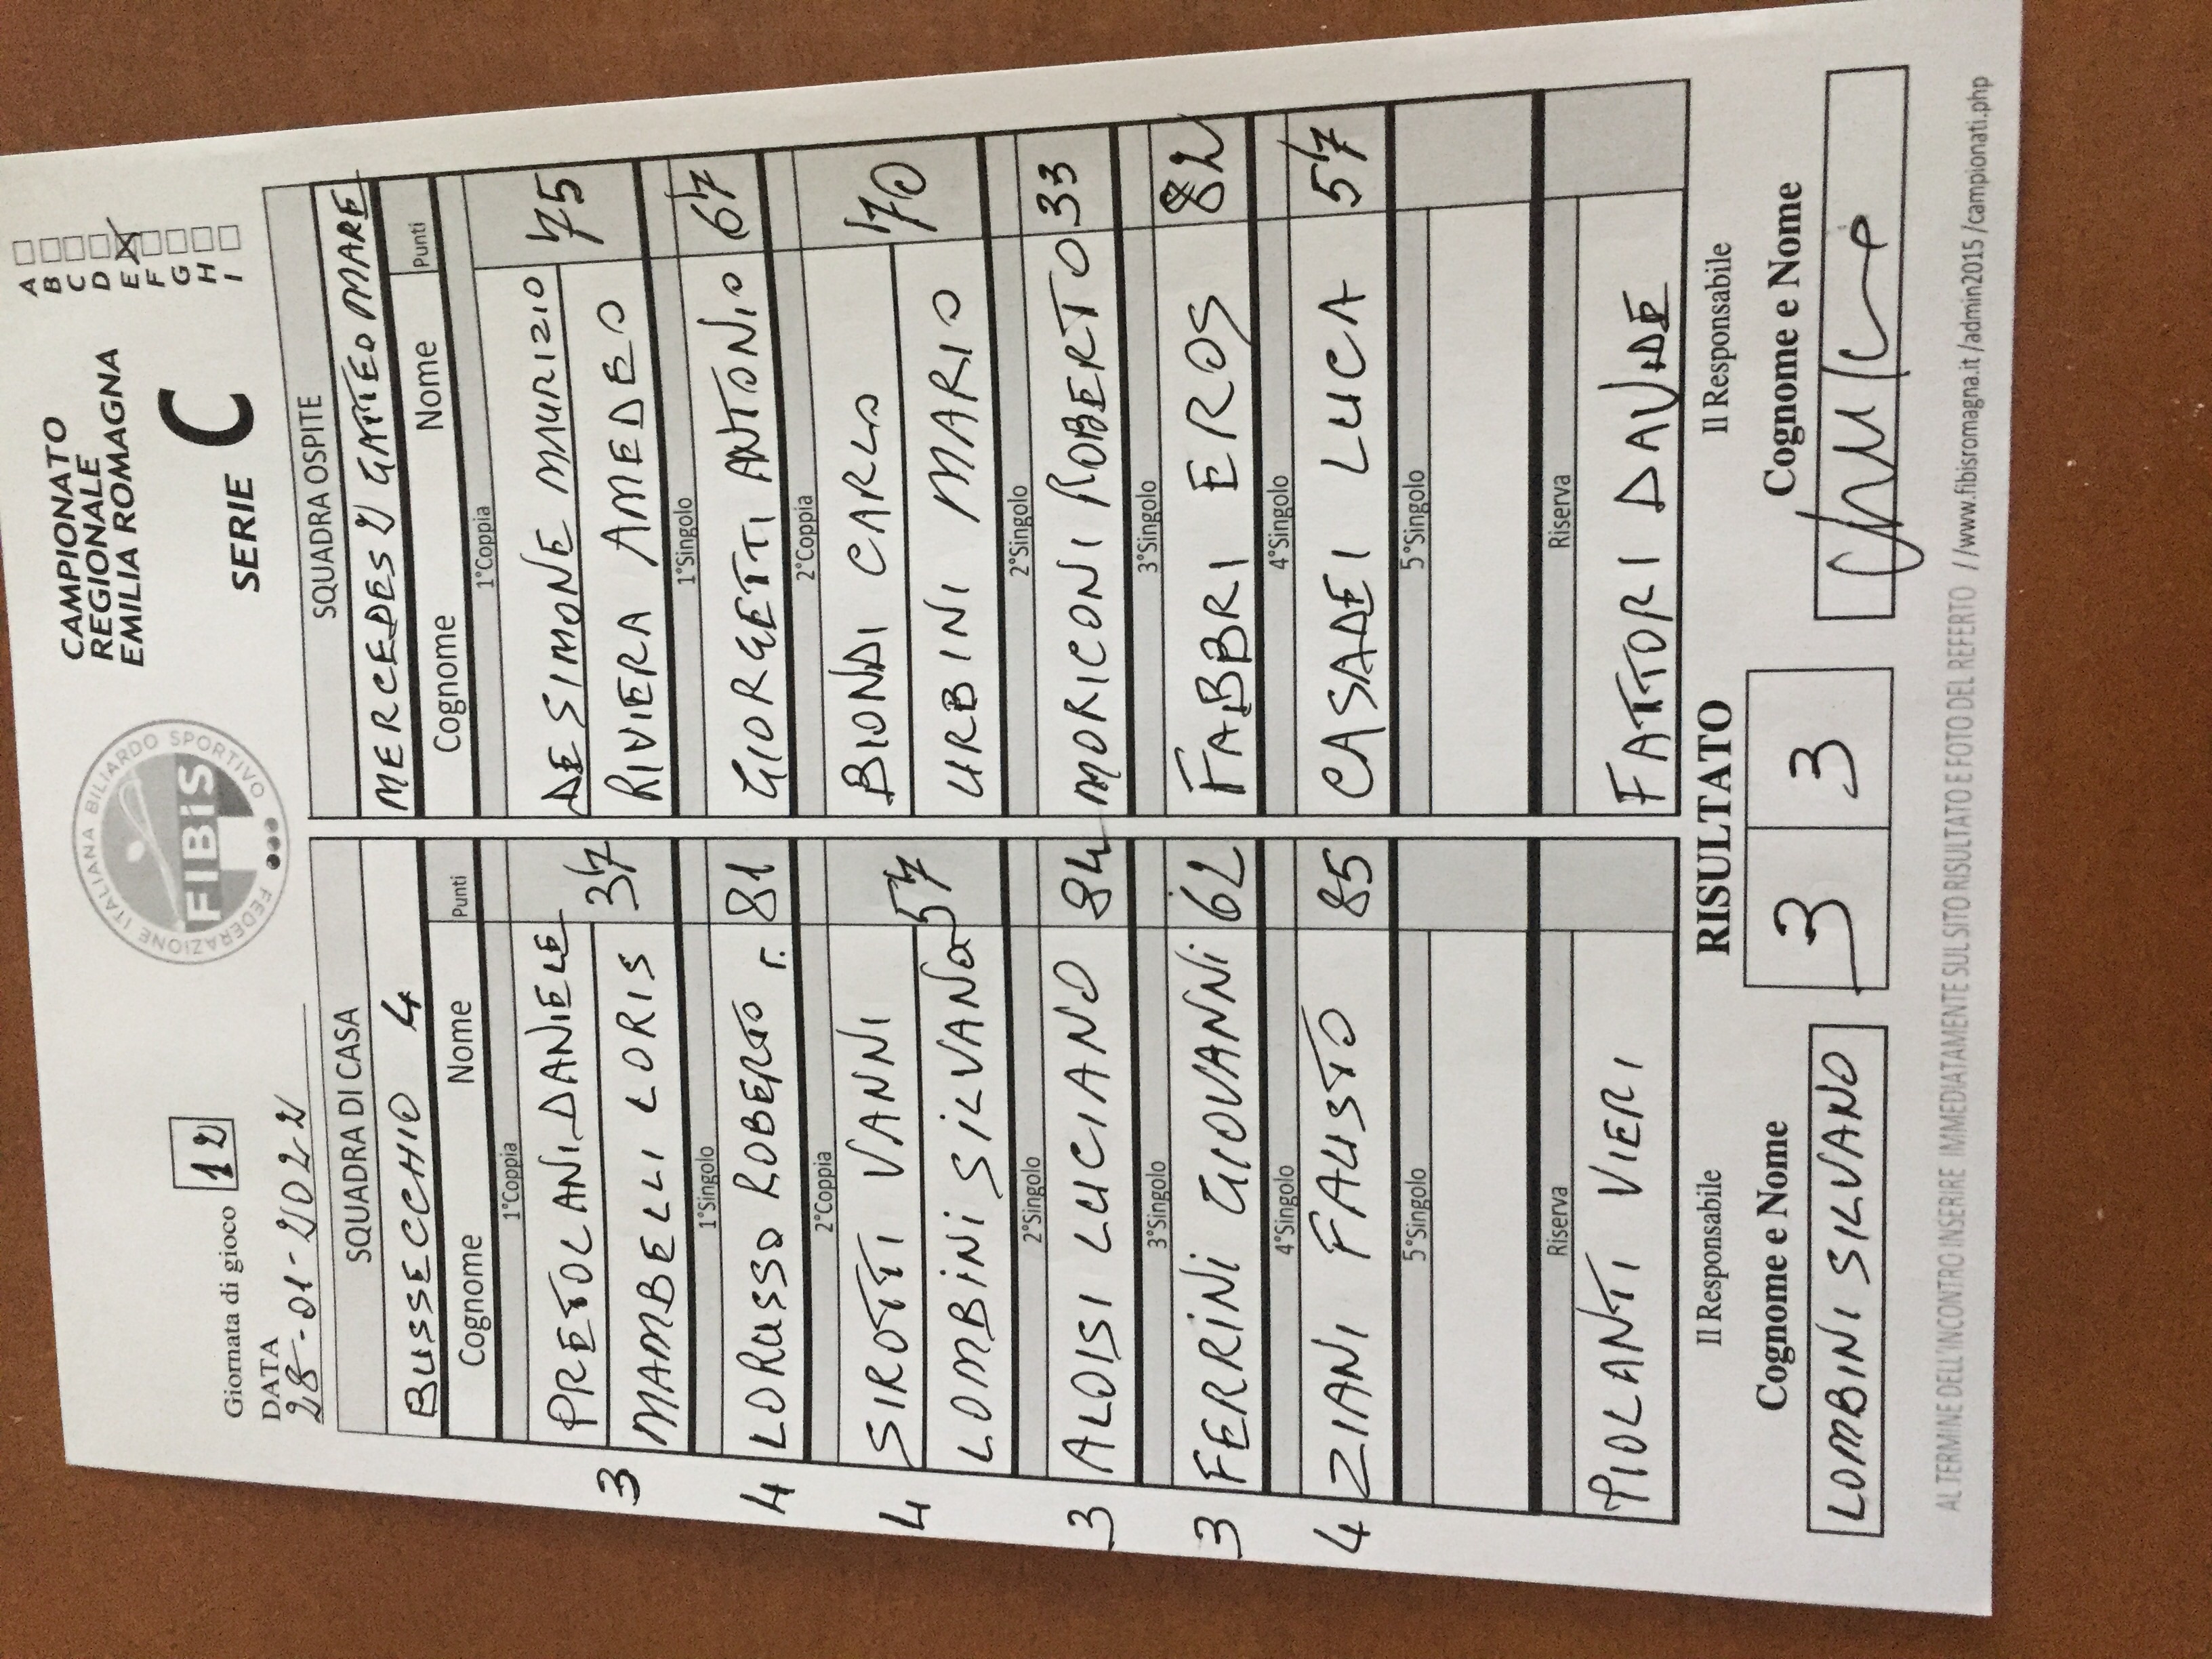 Giornata di gioco 12
DATA
28-01-2022
FEDERAZIONE ITALIANA BILIARDO SPORTIVO
FIBiS
CAMPIONATO
REGIONALE
EMILIA ROMAGNA
SERIE C
A
B
C
D
E X
F
G
H
I
SQUADRA DI CASA
BUSSECCHIO 4
Cognome Nome Punti
1°Coppia
PRETOLANI DANIELE
3 MAMBELLI LORIS 37
1°Singolo
4 LORUSSO ROBERTO r. 81
2°Coppia
SIROTTI VANNI
4 LOMBINI SILVANO 57
2°Singolo
3 ALOISI LUCIANO 84
3°Singolo
3 FERRINI GIOVANNI 62
4°Singolo
4 ZIANI FAUSTO 85
5°Singolo
Riserva
PIOLANTI VIERI
SQUADRA OSPITE
MERCEDES 2 GATTEO MARE
Cognome Nome Punti
1°Coppia
DE SIMONE MAURIZIO 75
RIVIERA AMEDEO
1°Singolo
GIORGETTI ANTONIO 67
2°Coppia
BIONDI CARLO 70
URBINI MARIO
2°Singolo
MORICONI ROBERTO 33
3°Singolo
FABBRI EROS 82
4°Singolo
CASADEI LUCA 57
5°Singolo
Riserva
FATTORI DAVIDE
Il Responsabile RISULTATO Il Responsabile
Cognome e Nome 3 3 Cognome e Nome
LOMBINI SILVANO
AL TERMINE DELL'INCONTRO INSERIRE IMMEDIATAMENTE SUL SITO RISULTATO E FOTO DEL REFERTO //www.fibisromagna.it /admin2015 /campionati.php